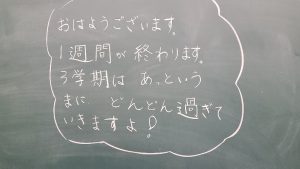 おはようございます。
1週間が終わります。
3学期は あっという
まに どんどん過ぎて
いきますよ!